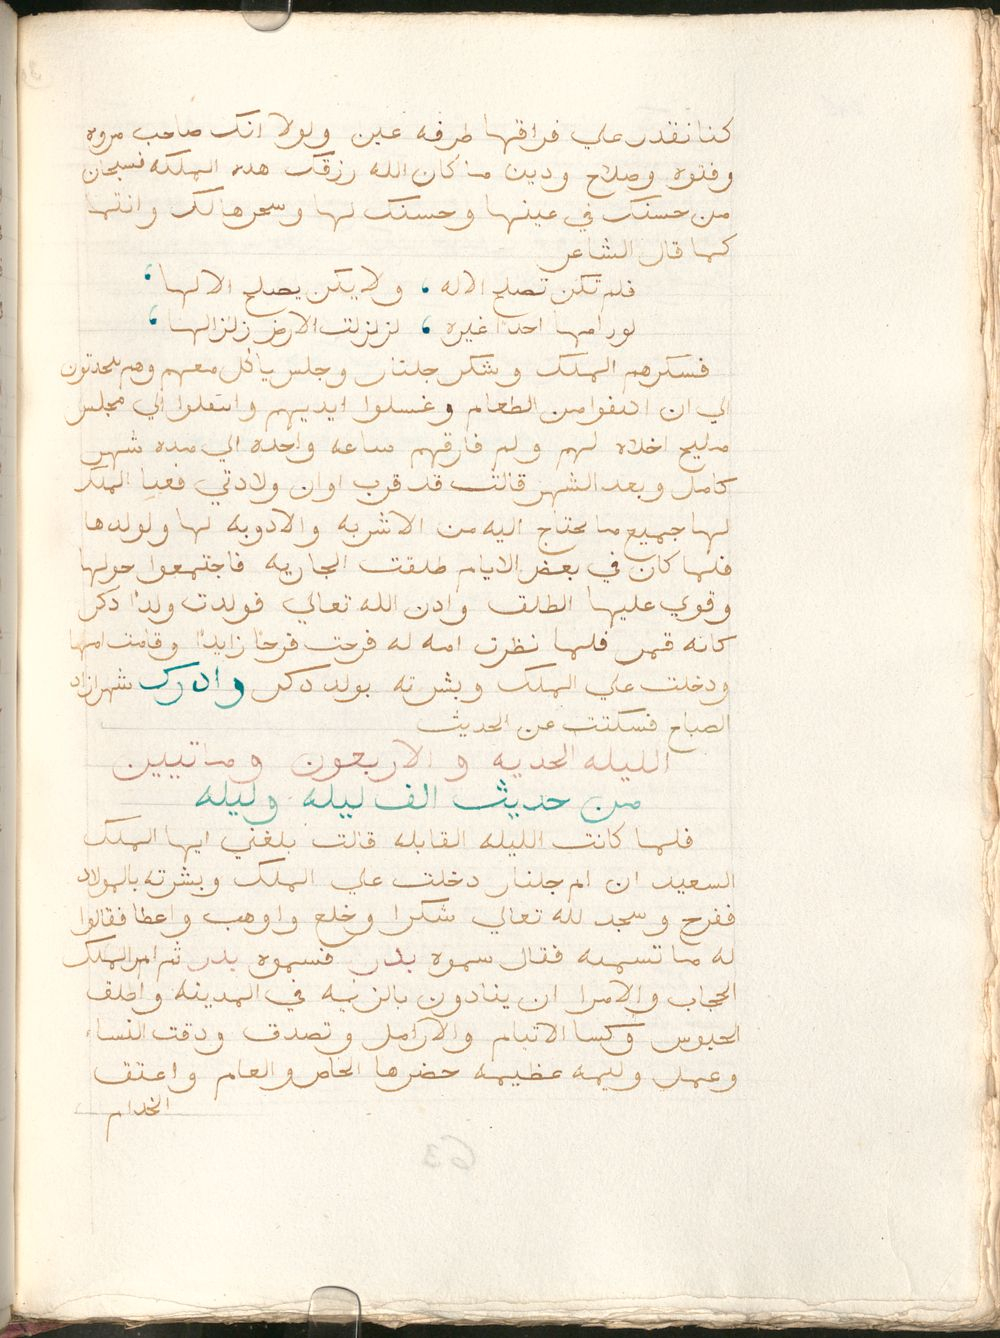 كنا نقدر علي فراقها طرفه عين ولولا انك صاحب مروه
وفتوه وصلاح ودين ما كان الله رزقك هده الملكه فسبحان
من حسنك في عينها وحسنك لها وسحرها لك وانتما
كما قال الشاعر
فلم تكن تصلح الا له ، ولا يكن يصلح الا لها ،
لو رامها احدا غيره ، لزلزلت الارض زلزالها ،
فسكرهم الملك وشكر جلنار وجلس ياكل معهم وهم يتحدتون
الي ان اكتفوا من الطعام وغسلوا ايديهم وانتقلوا الي مجلس
مليح اخلاه لهم ولم فارقهم ساعه واحده الي مده شهر
كامل وبعد الشهر قالت قد قرب اوان ولادتي فعبا الملك
لها جميع ما يحتاج اليه من الاشربه والادويه لها ولولدها
فلما كان في بعض الايام طلقت الجاريه فاجتمعوا حولها
وقوي عليها الطلق وادن الله تعالي فولدت ولدا دكر
كانه قمر فلما نظرت امه له فرحت فرحا زايدا وقامت امها
ودخلت علي الملك وبشرته بولد دكر وادرك شهرازاد
الصباح فسكتت عن الحديث
الليله الحديه والاربعون وماتيين
من حديث الف ليله وليله
فلما كانت الليله القابله قالت بلغني ايها الملك
السعيد ان ام جلنار دخلت علي الملك وبشرته بالمولاد
ففرح وسجد لله تعالي شكرا وخلع واوهب واعطا فقالوا
له ما تسميه فقال سموه بدر فسموه بدر ثم امر الملك
الحجاب والامرا ان ينادون بالزينه في المدينه واطلق
الحبوس وكسا الايتام والارامل وتصدق ودقت النساء
وعمل وليمه عظيمه حضرها الخاص والعام واعتق
الخدام
63